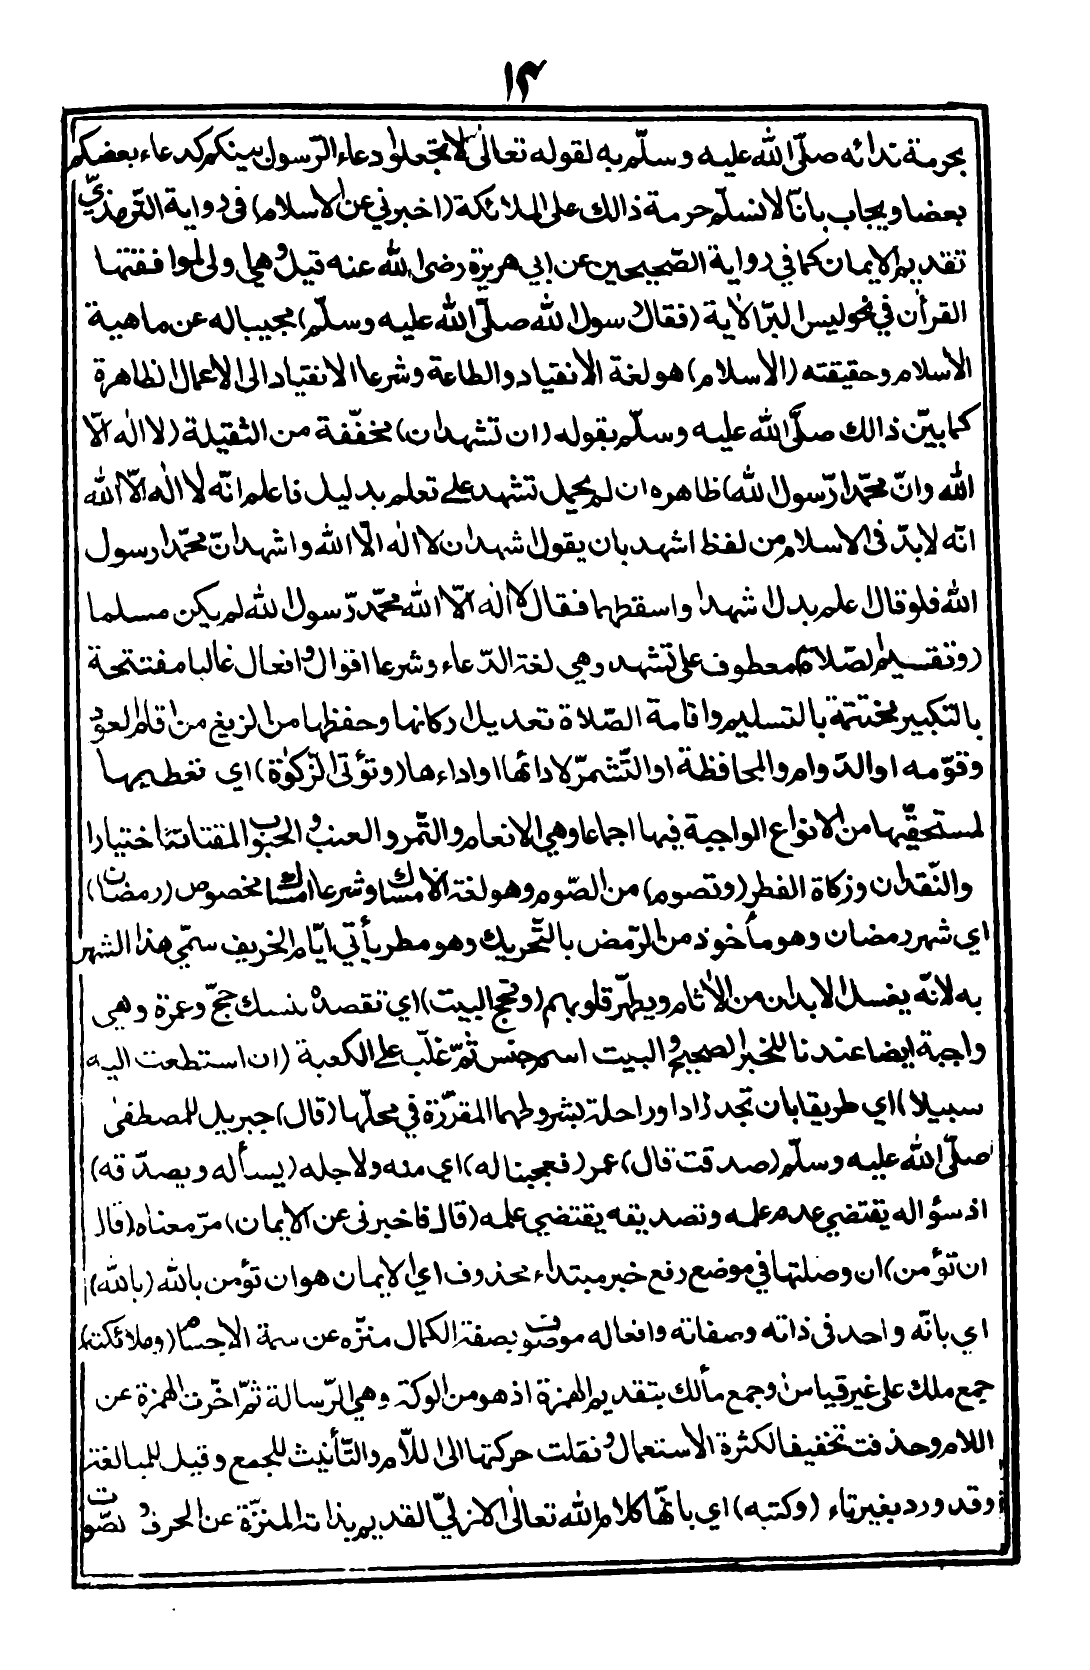 ١٣
بحرمة ندائه صلّى الله عليه وسلّم به لقوله تعالى لا تجعلوا دعاء الرّسول بينكم كدعاء بعضكم
بعضا ويجاب بانّا لا نسلّم حرمة ذالك على الملائكة (اخبرني عن الاسلام) في رواية التّرمذيّ
تقديم الايمان كما في رواية الصّحيحين عن ابي هريرة رضى الله عنه قيل وهي اولى لموافقتها
القرأن في نحو ليس البرّ الأية (فقال رسول الله صلّى الله عليه وسلّم) مجيبا له عن ماهية
الاسلام وحقيقته (الاسلام) هو لغة الانقياد والطاعة وشرعا الانقياد الى الاعمال الظاهرة
كما بيّن ذالك صلّى الله عليه وسلّم بقوله (ان تشهد ان) مخفّفة من الثقيلة (لا اله الّا
الله وانّ محمّدا رّسول الله) ظاهره ان لم يحمل تشهد على تعلم بدليل فاعلم انّه لا اله الّا الله
انّه لا بدّ في الاسلام من لفظ اشهد بان يقول اشهد ان لا اله الّا الله واشهد انّ محمّدا رسول
الله فلو قال اعلم بدل اشهد او اسقطهما فقال لا اله الّا الله محمّد رّسول الله لم يكن مسلما
(وتقيم الصّلاة) معطوف على تشهد وهي لغة الدّعاء وشرعا اقوال وافعال غالبا مفتتحة
بالتكبير مختتمة بالتسليم واقامة الصّلاة تعديل اركانها وحفظها من الزيغ من اقام العود
وقوّمه او الدّوام والمحافظة او التّشمرّ لادائها او اداءها (وتؤتى الزّكوٰة) اي تعطيها
لمستحقّيها من الانواع الواجبة فيها اجماعا وهي الانعام والتّمر والعنب والحبوب المقتاتة اختيارا
والنّقدان وزكاة الفطر (وتصوم) من الصّوم وهو لغة الامساك وشرعا امساك مخصوص (رمضان)
اي شهر رمضان وهو مأخوذ من الرّمض بالتّحريك وهو مطر يأتي ايّام الخريف سمّي هذا الشهر
به لانّه يغسل الابدان من الأثام ويطهّر قلوبهم (وتحج البيت) اي تقصده بنسك حجّ وعمرة وهي
واجبة ايضا عندنا للخبر الصحيح والبيت اسم جنس ثمّ غلّب على الكعبة (ان استطعت اليه
سبيلا) اي طريقا بان تجد زادا وراحلة بشروطهما المقرّرة في محلّها (قال) جبريل للمصطفى
صلّى الله عليه وسلّم (صدقت قال) عمر (فعجبنا له) اي منه ولاجله (يسأله ويصدّقه)
اذ سؤاله يقتضي عدم علمه وتصديقه يقتضي علمه (قال فاخبرنى عن الايمان) مرّ معناه (قال
ان تؤمن) ان وصلتها في موضع رفع خبر مبتداء محذوف اي الايمان هو ان تؤمن بالله (بالله)
اي بانّه واحد فى ذاته وصفاته وافعاله موصوف بصفة الكمال منزّه عن سمة الاجسام (وملائكته)
جمع ملك على غير قياس وجمع مألك بتقديم الهمزة اذ هو من الوكة وهي الرّسالة ثمّ اخّرت الهمزة عن
اللام وحذفت تخفيفا لكثرة الاستعمال ونقلت حركتها الى اللّام والتّأنيث للجمع وقيل للمبالغة
وقد ورد بغير تاء (وكتبه) اي بانّها كلام الله تعالى الازليّ القديم بذاته المنزّة عن الحرف